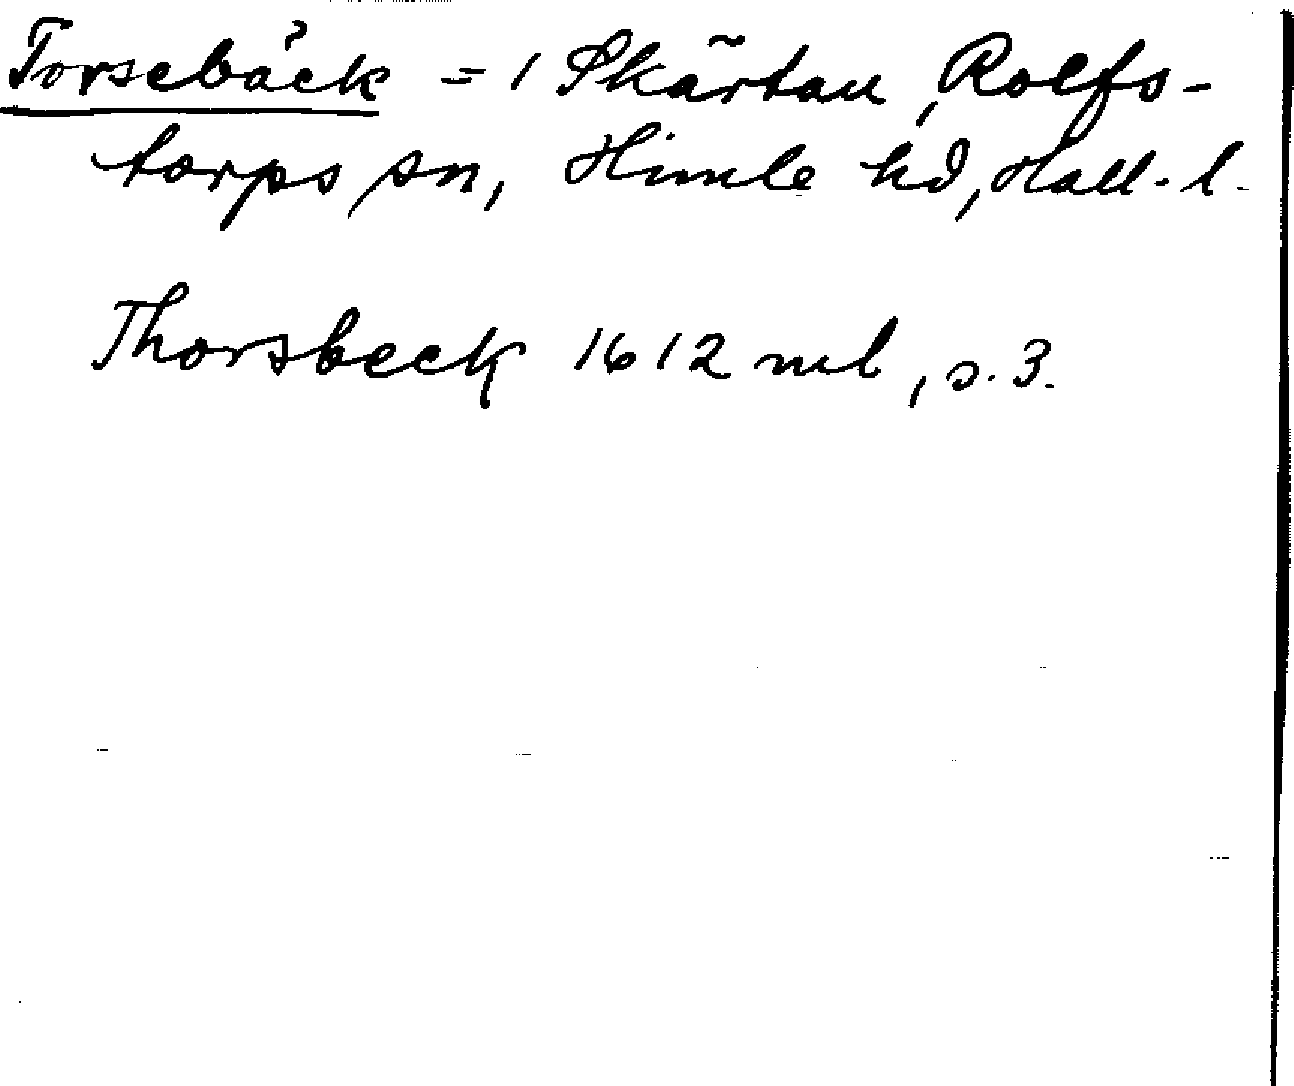 Torsebäck = 1 Skärtan, Rolfs-
torps sn, Himle hd, Hall. l.
Thorsbeck 1612 ml, s. 3.